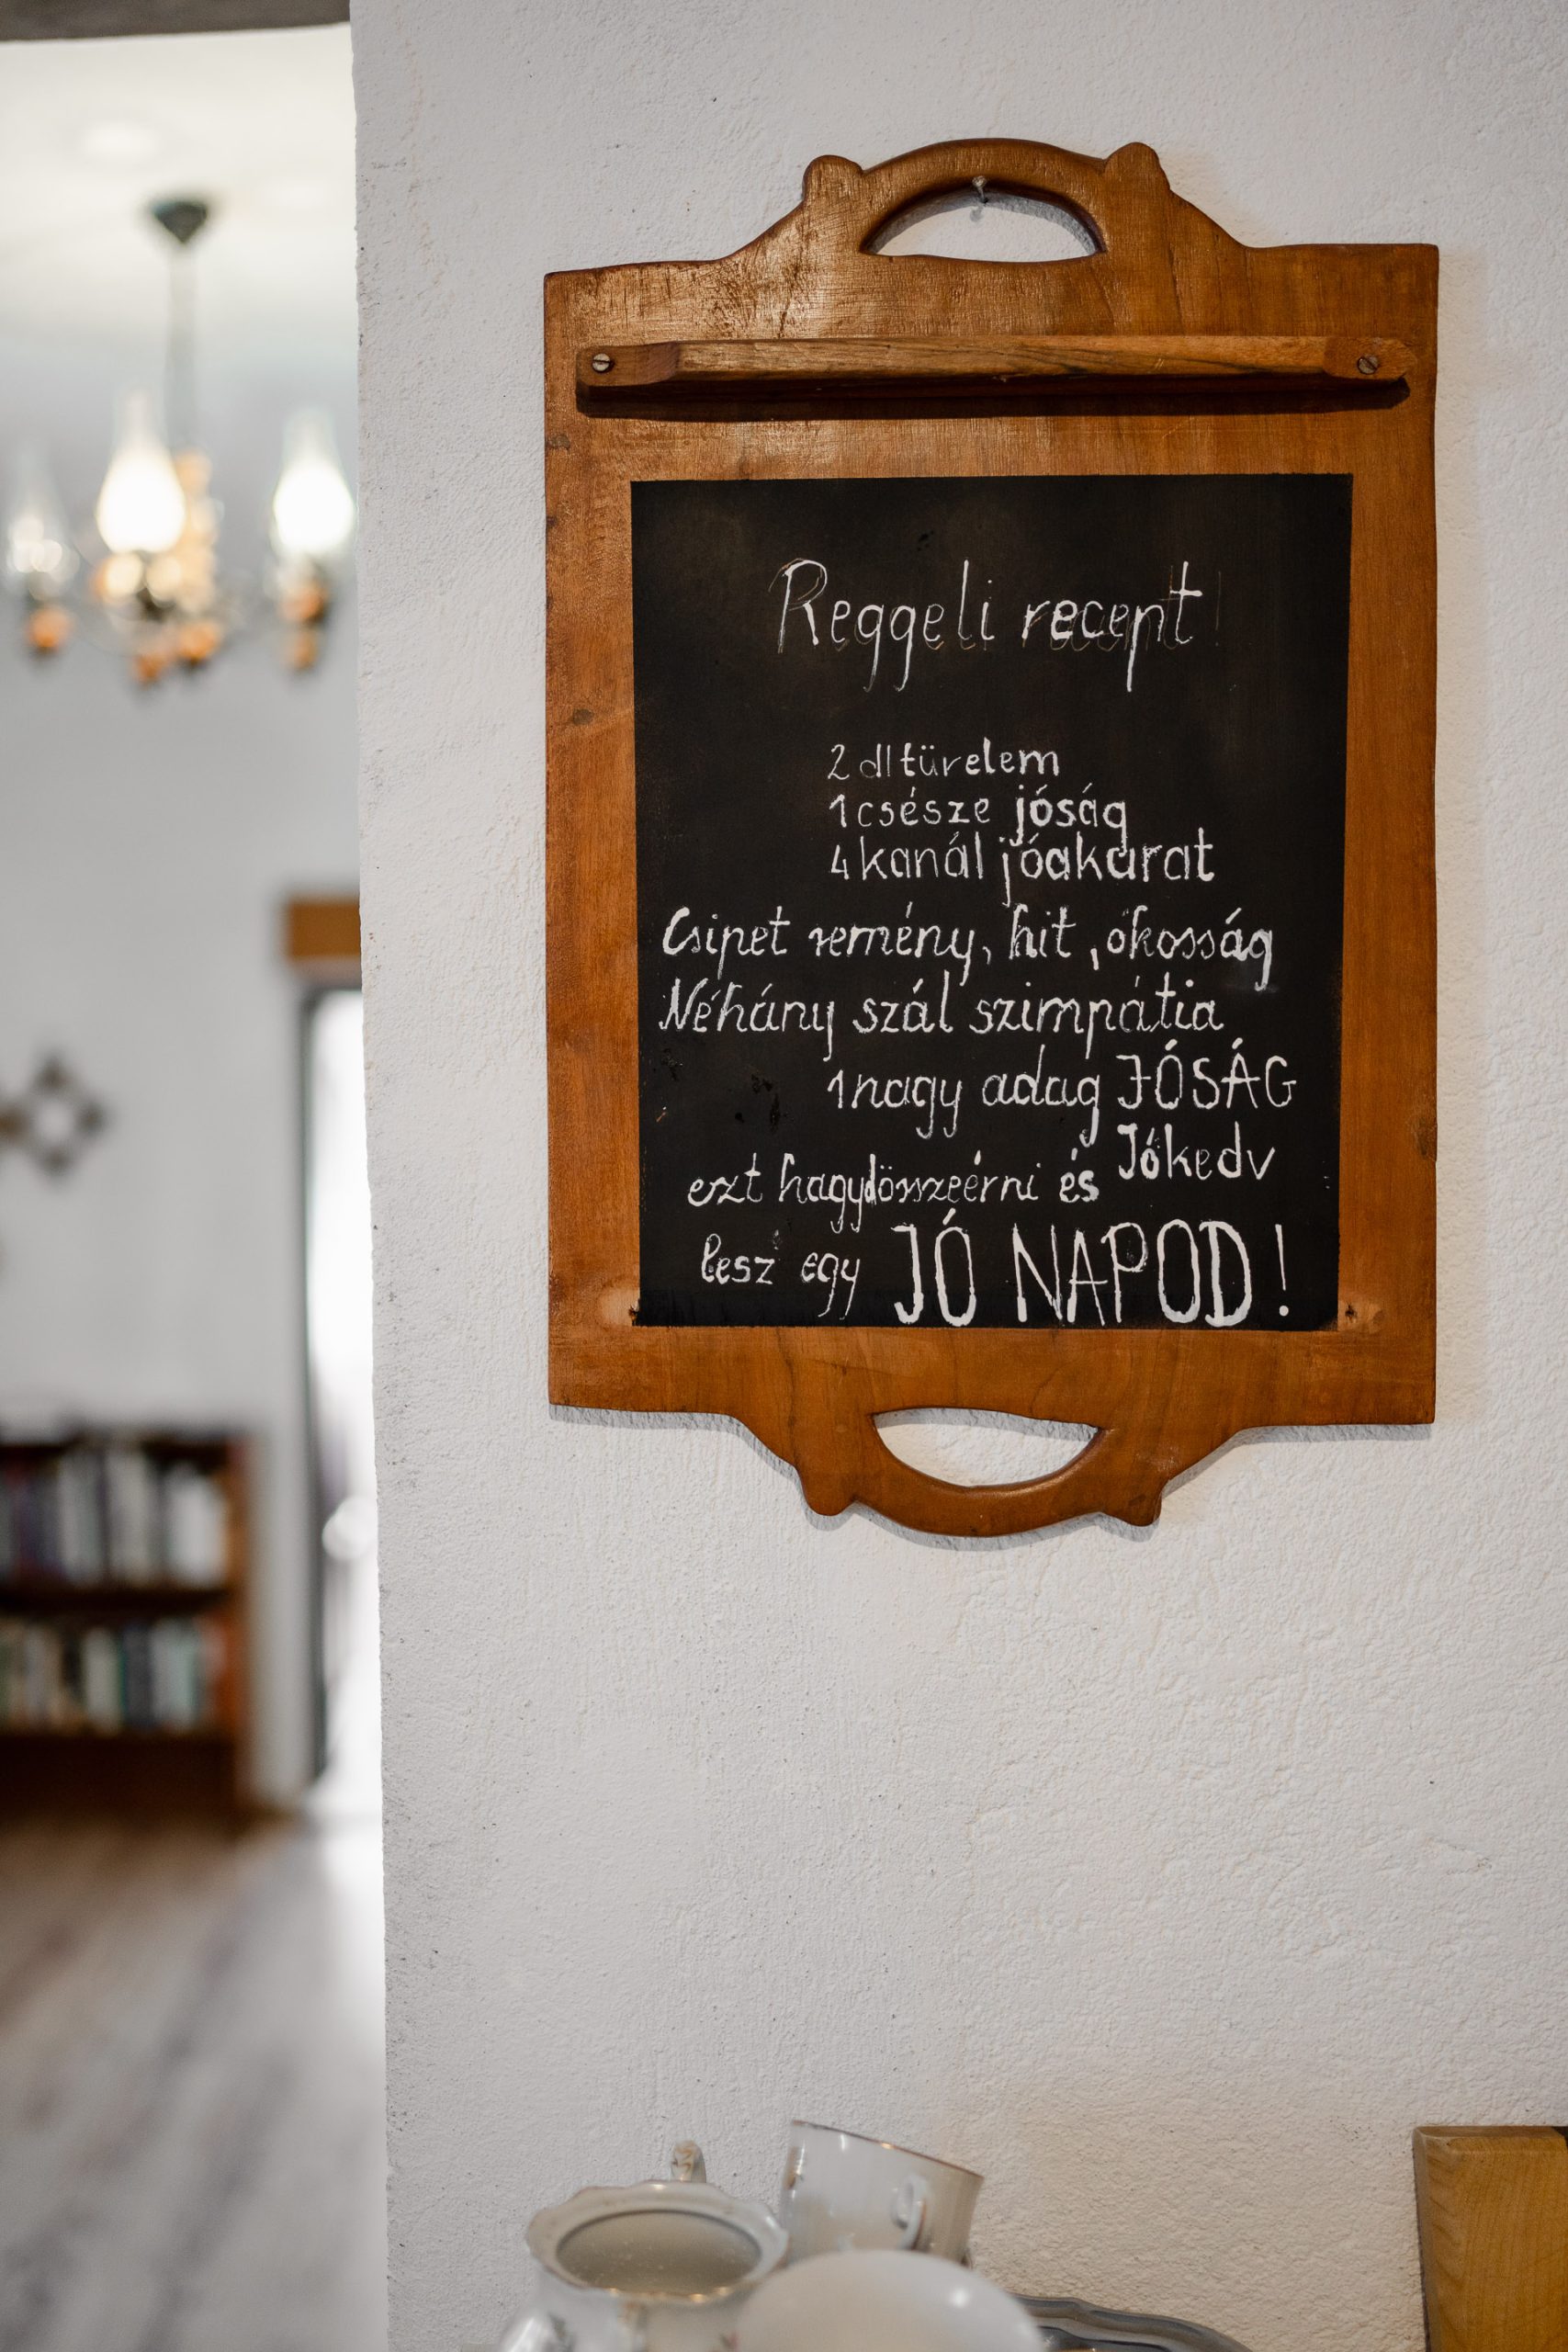 Reggeli recept
2 dl türelem
1 csésze jóság
4 kanál jóakarat
Csipet remény, hit, okosság
Néhány szál szimpátia
1 nagy adag JÓSÁG
Jókedv
ezt hagyd összeérni és
lesz egy JÓ NAPOD!